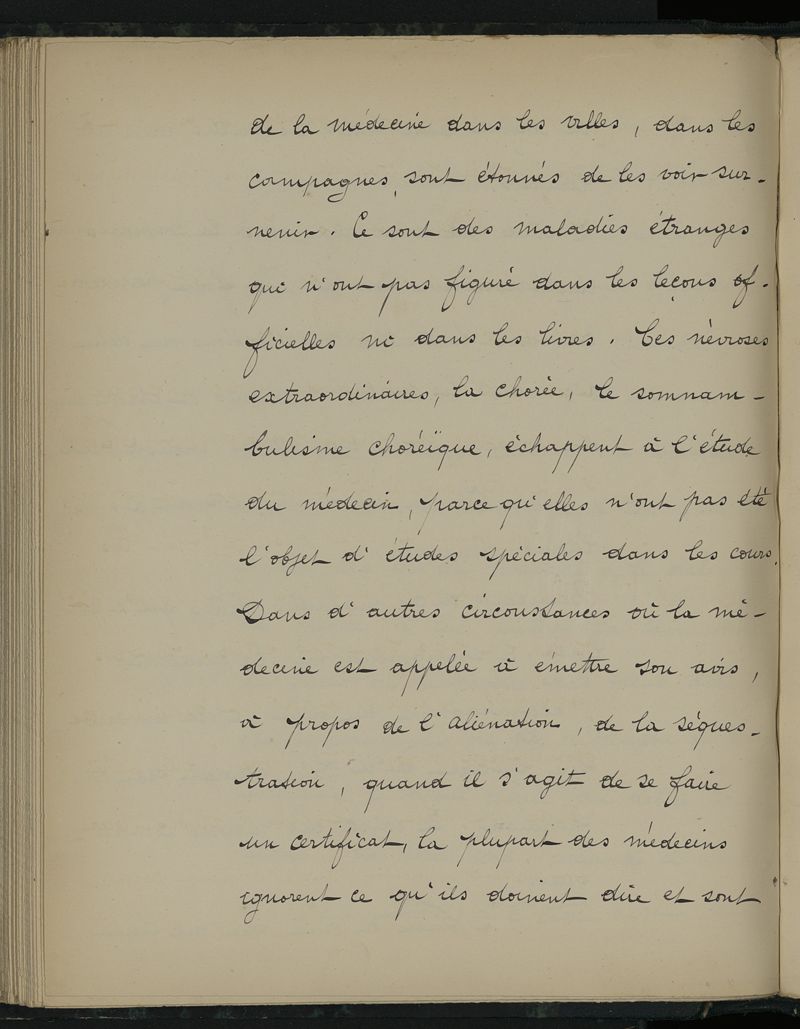 de la médecine dans les villes, dans les
campagnes, sont étonnés de les voir sur-
venir. Ce sont des maladies étranges
qui n'ont pas figuré dans les leçons of-
ficielles ni dans les livres. Ces névroses
extraordinaires, la chorée, le somnam-
bulisme choréïque, échappent à l'étude
du médecin, parce qu'elles n'ont pas été
l'objet d'études spéciales dans les cours.
Dans d'autres circonstances où la mé-
decine est appelée à émettre son avis,
à propos de l'aliénation, de la séques-
tration, quand il s'agit de se faire
un certificat, la plupart des médecins
ignorent ce qu'ils doivent dire et sont